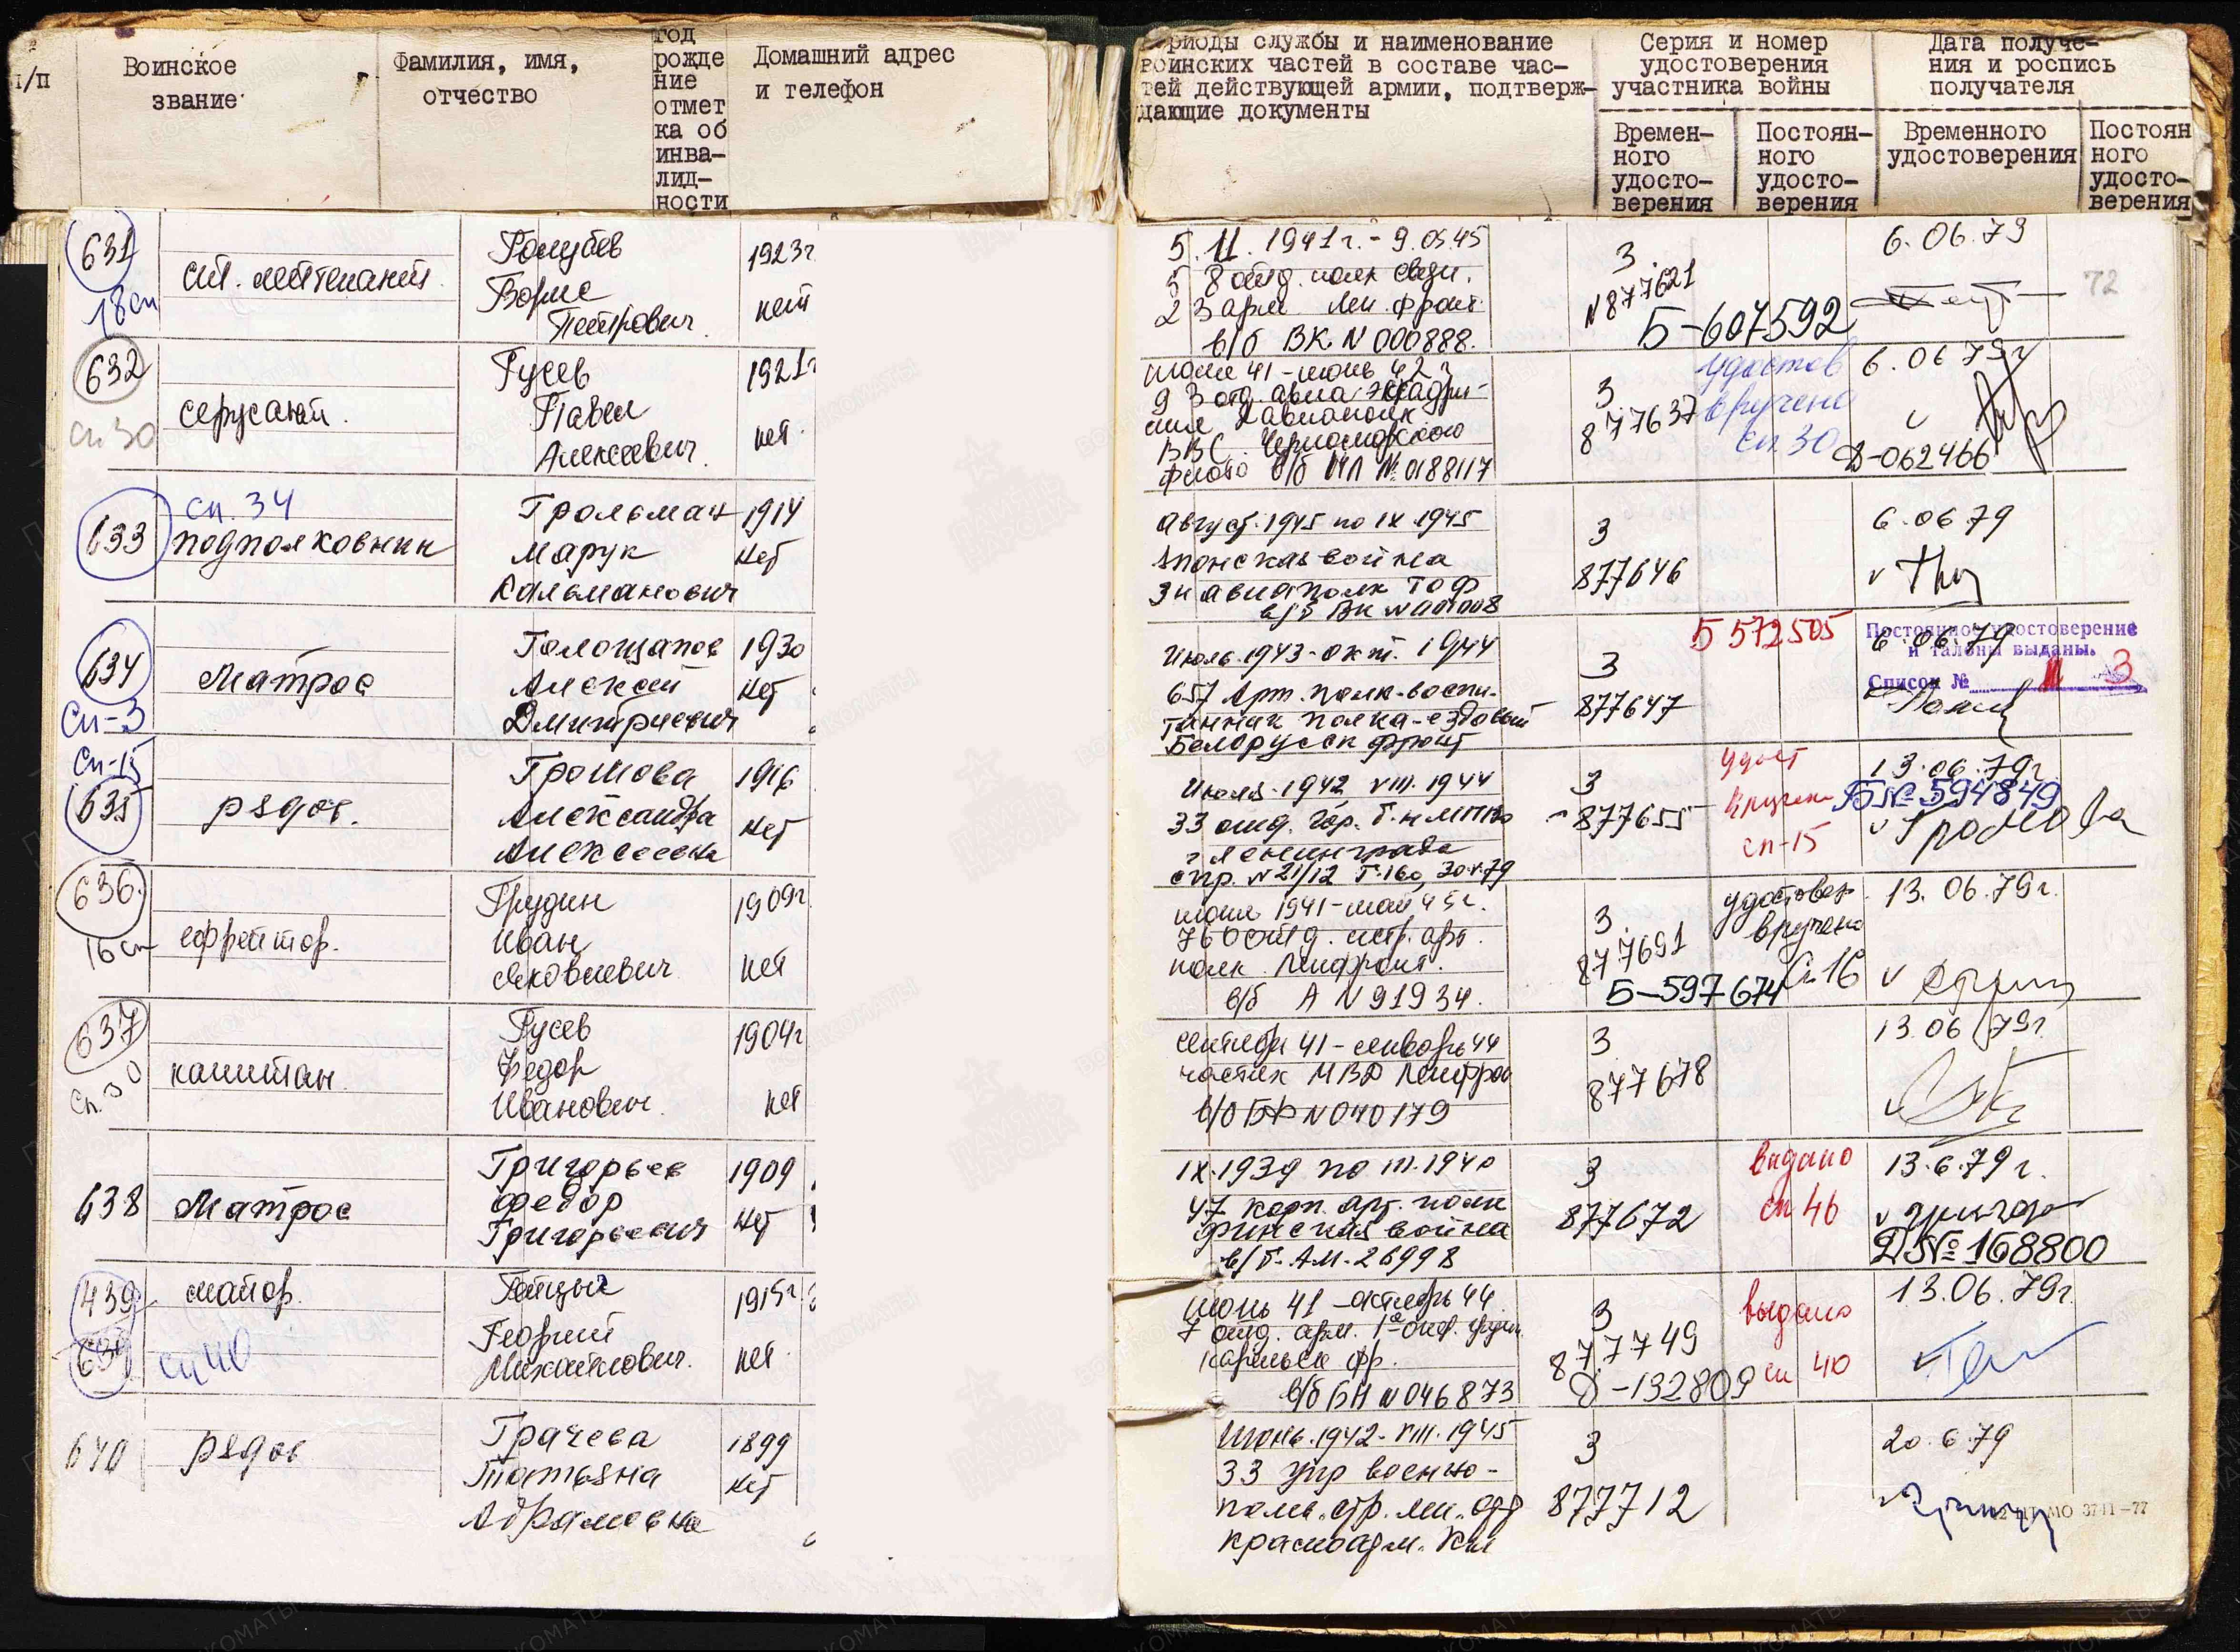 п/п
Воинское
звание
Фамилия, имя,
отчество
год
рожде
ние
отмет
ка об
инва-
лид-
ности
Домашний адрес
и телефон
периоды службы и наименование
воинских частей в составе час-
тей действующей армии, подтверж-
дающие документы
Серия и номер
удостоверения
участника войны
Времен-
ного
удосто-
верения
Постоян-
ного
удосто-
верения
Дата получе-
ния и роспись
получателя
Временного
удостоверения
Постоян
ного
удосто-
верения
631
18 сп
ст. лейтенант
Голубев
Борис
Петрович
1923г
нет
5.11.1941г.-9.05.45
58 отд. полк связи.
23 арм. Лен. фронт
в/б ВК N 000888.
3.
N877621
Б-607592
6.06.79
72
632
сп 30
сержант.
Гусев
Павел
Алексеевич.
1921г
нет
июль 41-июнь 42г
93 отд. авиа эскадри-
авиаполк
ВВС Черноморского
флота в/б МЛ № 0188117
3
877637
удостов
вручено
сп. 30
6.06 79г
Д-062466
633
сп. 34
подполковник
Грольман
Марук
Кальманович
1914
нет
Август.1945 по IX 1945
японская война
авиаполк ТОФ
в/б ВК
3
877646
6.06 79
634
Сп-3
Матрос
Голощапов
Алексей
Дмитриевич
1930
нет
Июль.1943-окт. 1944
657 Арт. полк-воспи-
танник полка-ездовый
Белорусск фронт
3
877647
5 572505
6.06.79
Постоянное удостоверение
и талоны выданы.
Список № 3
Сп-15
635
рядов.
Громова
Александра
Алексеевна
1916
нет
Июль.1942 VIII.1944
33 отд. гор. б-н МПВО
г Ленинграда
спр. N 21/12 Г-160, 30.V.79
3
877655
удост
вручено
сп-15
13.06.79г
Б№ 594849
Громова
636.
16 сп
ефрейтор.
Грудин
Иван
Яковлевич
1909г.
нет
июль 1941-май 45г.
760 отд. истр. арт.
полк. Ленфронт.
в/б А N 91934.
3.
877691
Б-597674
удостовер.
вручено
Сп 16
13.06.79г.
637
Сп. 30
капитан.
Гусев
Федор
Иванович.
1904г
нет
сентябрь 41-январь 44
МВД Ленфрон
в/б БФ N 040179
3
877678
13.06.79г.
638
Матрос
Григорьев
Федор
Григорьевич
1909
нет
IX.1939 по III.1940
47 корп. арт. полк
финская война
в/б. АМ-26998
3
877672
выдано
сп 46
13.6.79г.
Д№ 168800
439
639
майор.
сп 40
Георгий
Михайлович.
1915г
нет
июнь 41-октябрь 44
7 отд. арм.
Карельск фр.
в/б БН N 046873
3
877749
Д-132809
выдано
сп 40
13.06.79г.
640
рядов
Грачева
Татьяна
Абрамовна
1899
нет
Июнь.1942-VIII.1945
33 упр военно-
красноарм. кн
3
877712
20.6.79
МО 3711-77